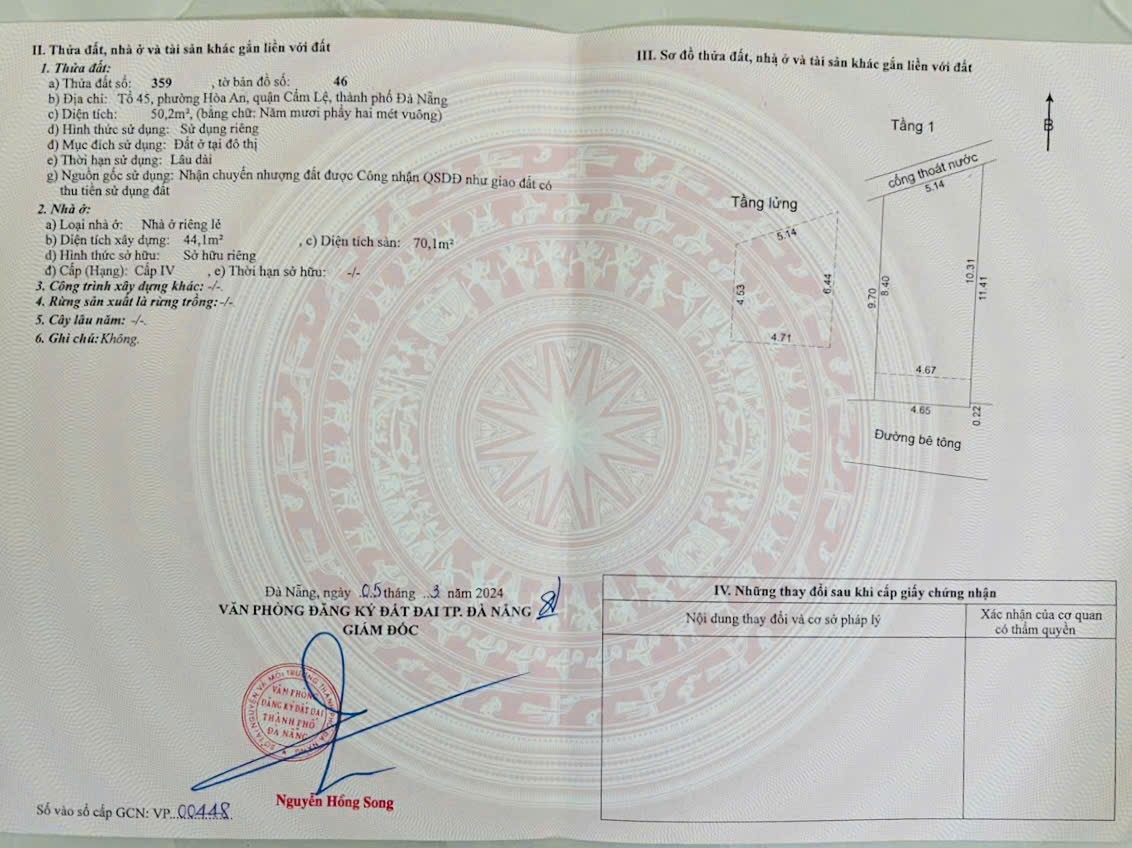 II. Thửa đất, nhà ở và tài sản khác gắn liền với đất
1. Thửa đất:
a) Thửa đất số: 359 , tờ bản đồ số: 46
b) Địa chỉ: Tổ 45, phường Hòa An, quận Cẩm Lệ, thành phố Đà Nẵng
c) Diện tích: 50,2m², (bằng chữ: Năm mươi phẩy hai mét vuông)
d) Hình thức sử dụng: Sử dụng riêng
đ) Mục đích sử dụng: Đất ở tại đô thị
e) Thời hạn sử dụng: Lâu dài
g) Nguồn gốc sử dụng: Nhận chuyển nhượng đất được Công nhận QSDĐ như giao đất có
thu tiền sử dụng đất
2. Nhà ở:
a) Loại nhà ở: Nhà ở riêng lẻ
b) Diện tích xây dựng: 44,1m² , c) Diện tích sàn: 70,1m²
d) Hình thức sở hữu: Sở hữu riêng
đ) Cấp (Hạng): Cấp IV , e) Thời hạn sở hữu: -/-
3. Công trình xây dựng khác: -/-.
4. Rừng sản xuất là rừng trồng: -/-
5. Cây lâu năm: -/-.
6. Ghi chú: Không.
Đà Nẵng, ngày 05 tháng 3 năm 2024
VĂN PHÒNG ĐĂNG KÝ ĐẤT ĐAI TP. ĐÀ NẴNG
GIÁM ĐỐC
VĂN PHÒNG
ĐĂNG KÝ ĐẤT ĐAI
THÀNH PHỐ
ĐÀ NẴNG
Nguyễn Hồng Song
Số vào sổ cấp GCN: VP 00448
III. Sơ đồ thửa đất, nhà ở và tài sản khác gắn liền với đất
B
Tầng 1
cống thoát nước
5.14
9.70
8.40
10.31
11.41
4.67
4.65
0.22
Đường bê tông
Tầng lửng
5.14
4.53
6.44
4.71
IV. Những thay đổi sau khi cấp giấy chứng nhận
Nội dung thay đổi và cơ sở pháp lý
Xác nhận của cơ quan
có thẩm quyền